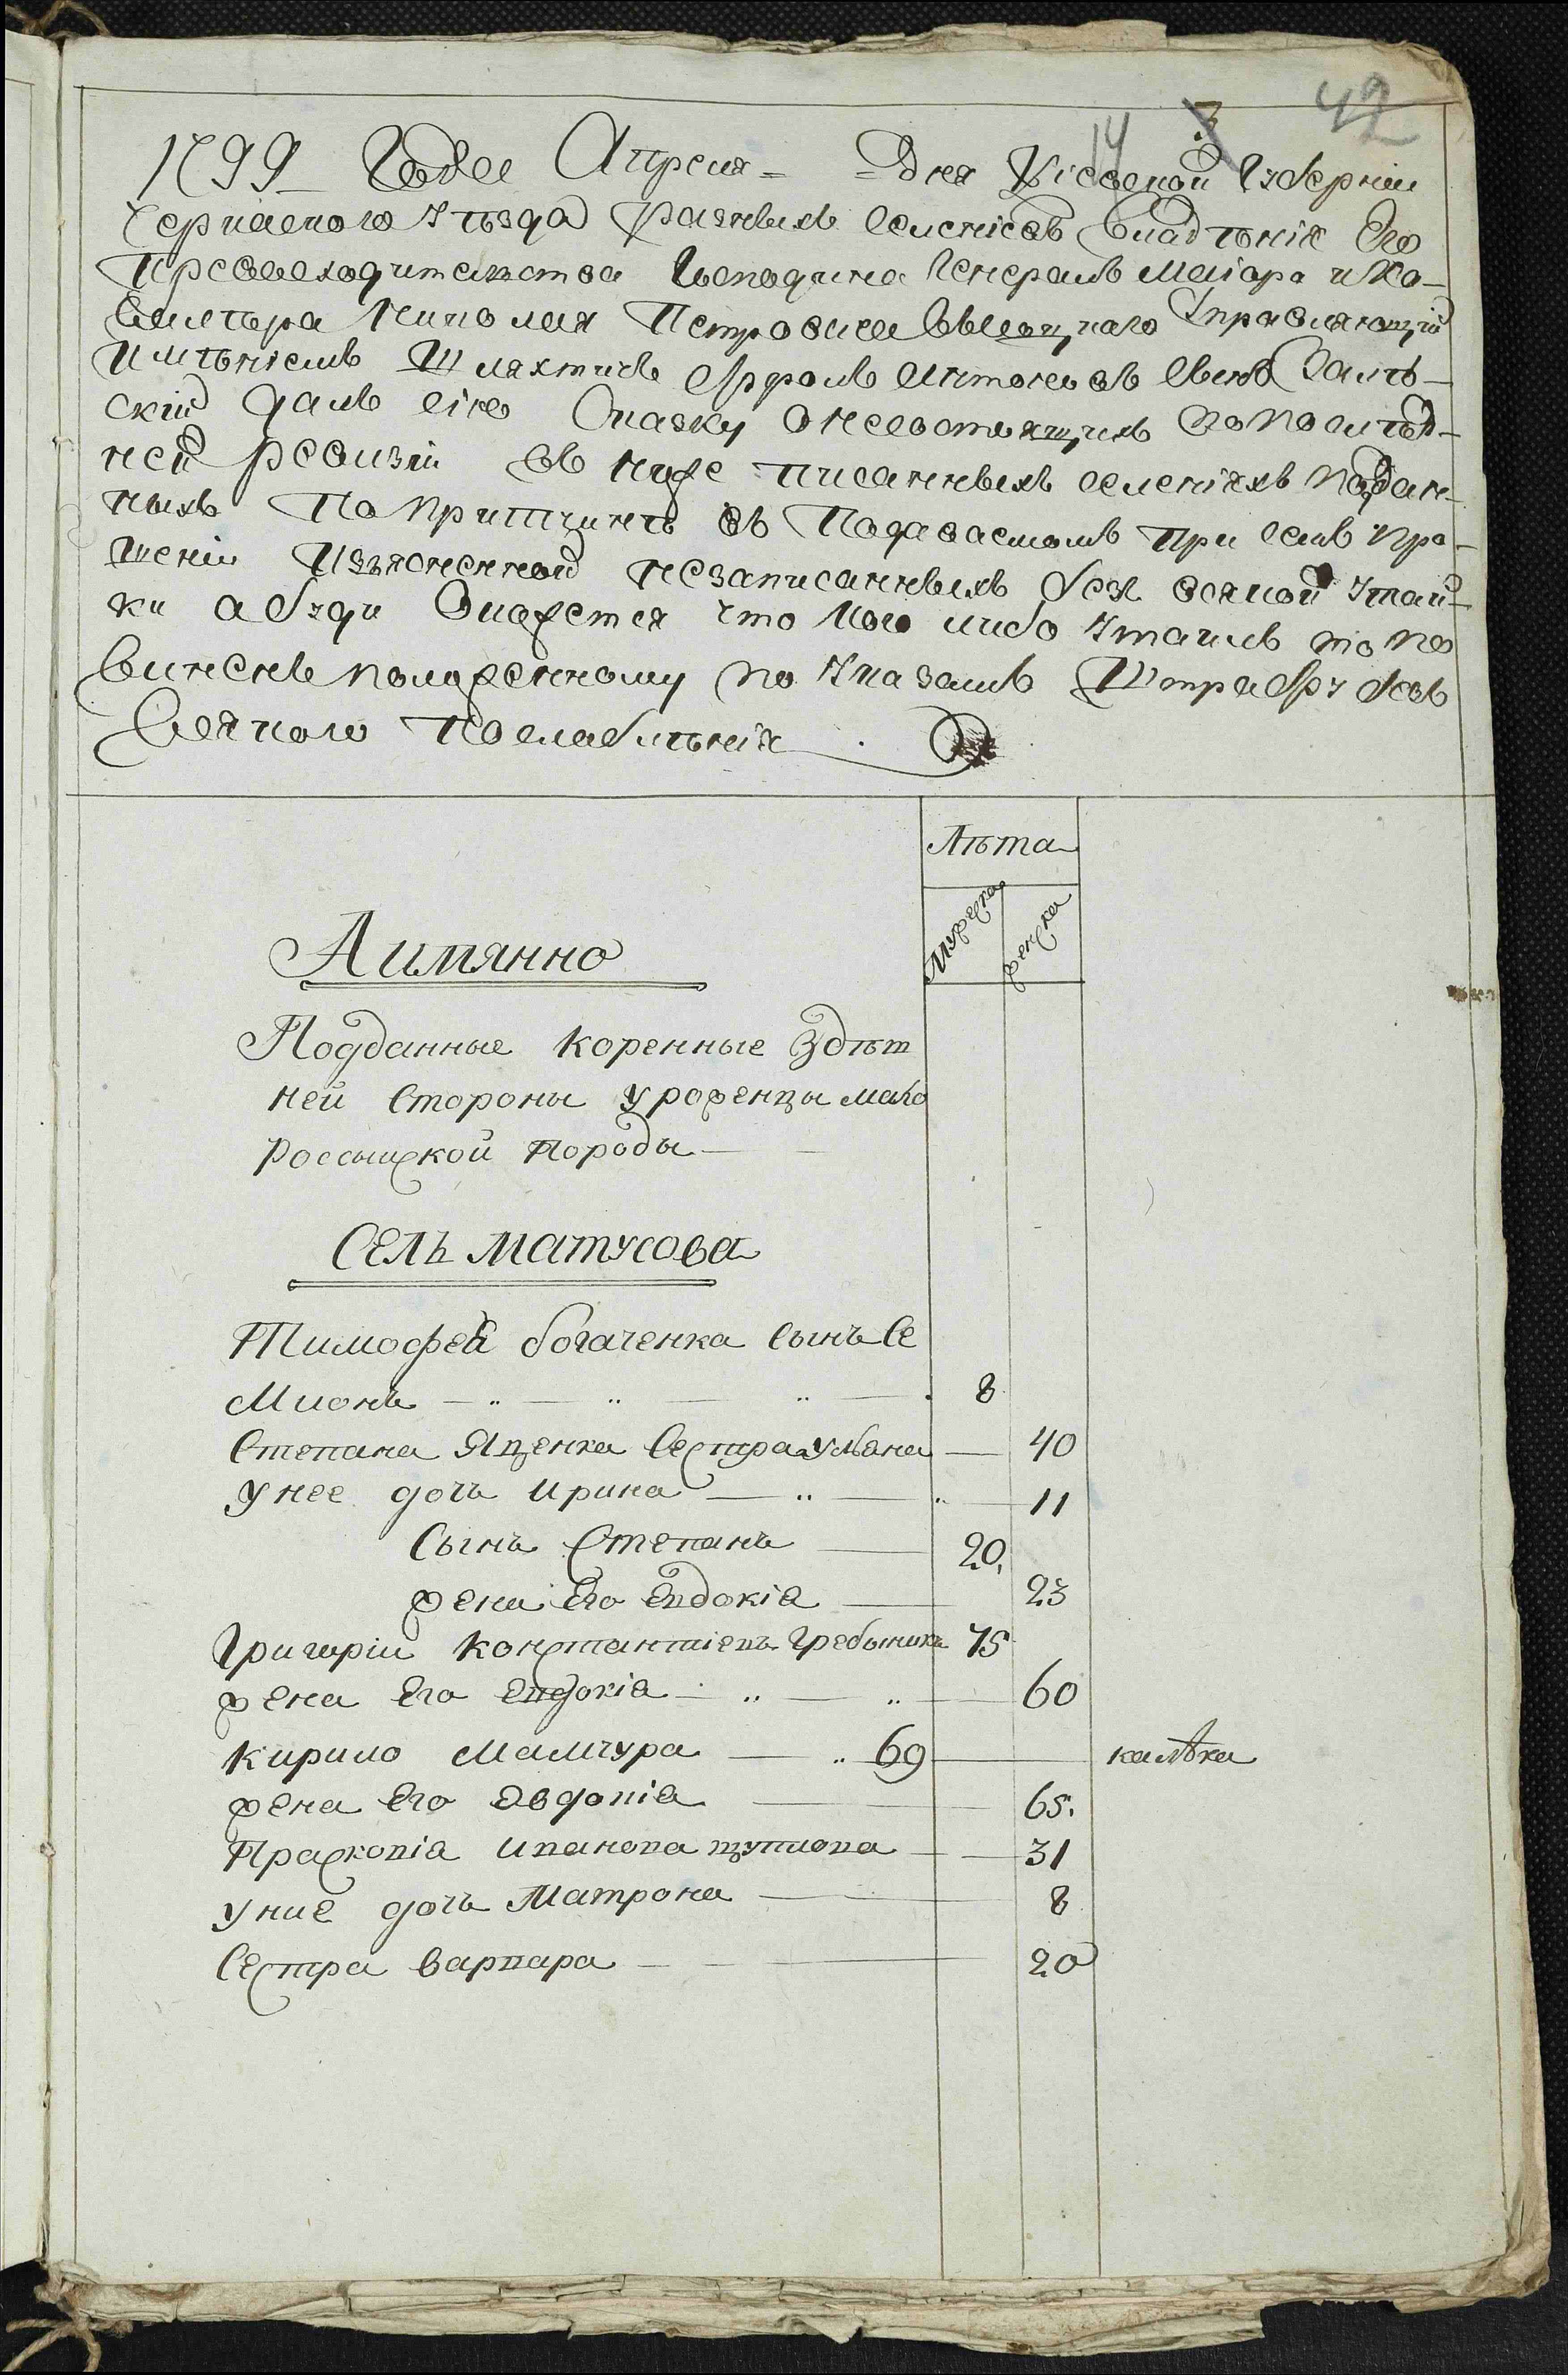 42
14 3
1799 Года Апреля = = Дня Кіевской Губерніи
Черкаского Уѣзда разныхъ селеніевъ Владѣнія Его
Превосходителства Господина Генералъ Маіора и Ка-
валѣра Николая Петровича Высоцкаго Управляющій
Имѣніемъ Шляхтичь Антоновъ сынъ
скій далъ сію Скаску о несостоящихъ по послѣд-
ней ревизіи въ ниже писанныхъ селеніяхъ поддан-
ныхъ По притчинѣ въ Подаваемомъ При семъ про-
шеніи Изъясненной незаписанныхъ безъ всякой утай-
ки а буди Окажется что кого либо утаилъ то по
виненъ положенному по указамъ Штрафу безъ
Всякого Послаблѣнія
Лѣта
Мужеска
женска
А имянно
Подданные коренные Здѣш
ней стороны уроженцы мало
россииской породы
Селъ матусова
Тимофей богаченка сынъ Се
мионъ 8
Степана Яценка Сестра Уляна 40
у нее дочь ирина 11
Сынъ Степанъ 20
жена Его Евдокіа 23
Григорій константіевъ Гребѣникъ 75
жена Его Евдокіа 60
кирило Мамчура 69 калѣка
жена Его Евдокіа 65.
Праскопіа Иванова цупкова 31
у ние дочь Матрона 8
Сестра варвара 20